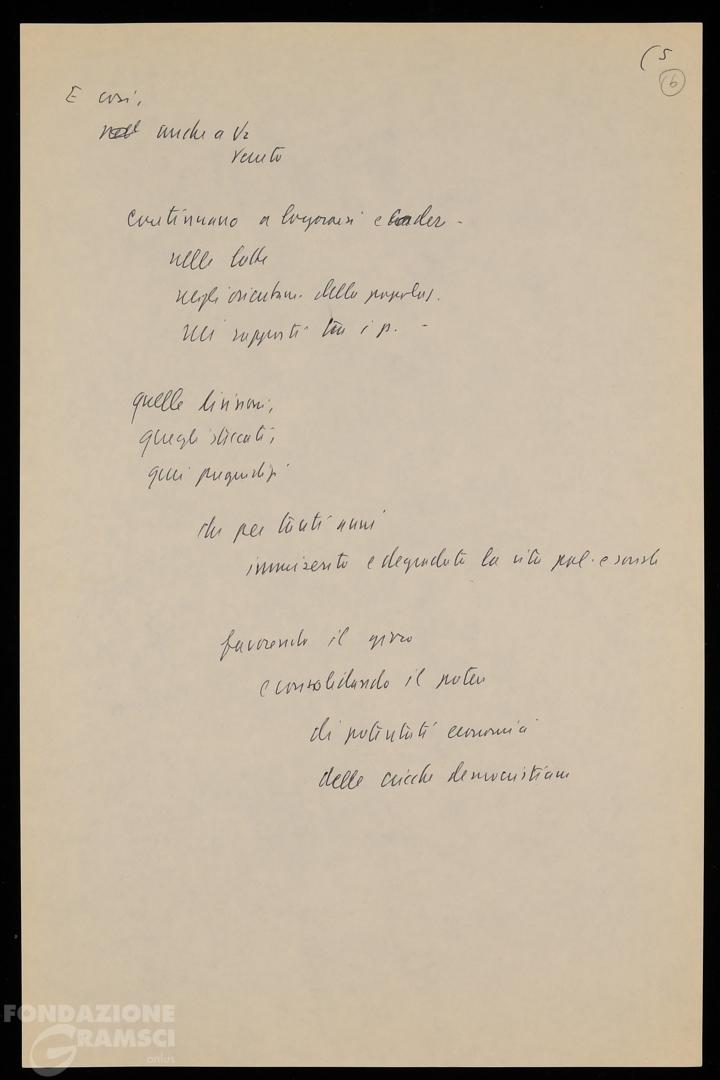 (5
6
E così,
anche a Vz
Veneto
continuano a logorarsi e cadere -
nelle lotte
negli orientam. della popolaz.
nei rapporti tra i p. -
quelle divisioni,
quegli steccati,
quei pregiudizi
che per tanti anni
immiserito e degradato la vita pol. e sociale
favorendo il gioco
e consolidando il potere
di potentati economici
delle cricche democristiane
FONDAZIONE
GRAMSCI
onlus